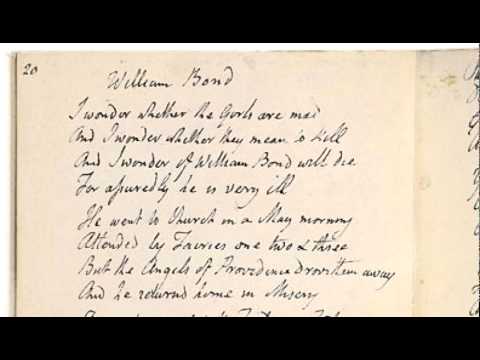 20
William Bond
I wonder whether the Girls are mad
And I wonder whether they mean to kill
And I wonder if William Bond will die
For assuredly he is very ill
He went to Church in a May morning
Attended by Fairies one two & three
But the Angels of Providence drove them away
And he returnd home in Misery